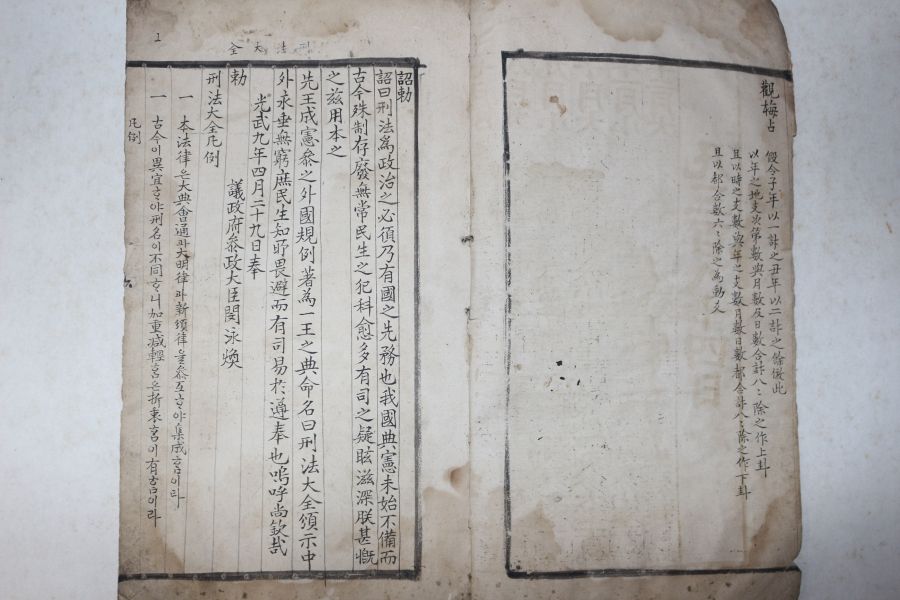 觀梅占
假令子年以一計之丑年以二計之餘倣此
以年之地支次第數與月數及日數合計八〻除之作上卦
且以時之支數與年之支數月數日數都合計八〻除之作下卦
且以都合數六〻除之為動爻
刑法大全
詔勅
詔曰刑法為政治之必須乃有國之先務也我國典憲未始不備而
古今殊制存廢無常民生之犯科愈多有司之疑眩滋深朕甚慨
之玆用本之
先王成憲參之外國規例著為一王之典命名曰刑法大全頒示中
外永垂無窮庶民生知所畏避而有司易於遵奉也嗚呼尚欽哉
光武九年四月二十九日奉
勅
議政府參政大臣閔泳煥
刑法大全凡例
一 本法律은大典會通과大明律과新頒律을參互ᄒᆞ야集成홈이라
一 古今이異宜ᄒᆞ야刑名이不同ᄒᆞ니加重减輕홈은折衷홈이有홈이라
凡例